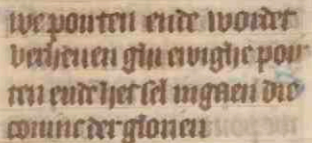 we pouten ende wordet
verheuen ghi ewighe pou
ten ende het sel ingaen die
coninc der glorien